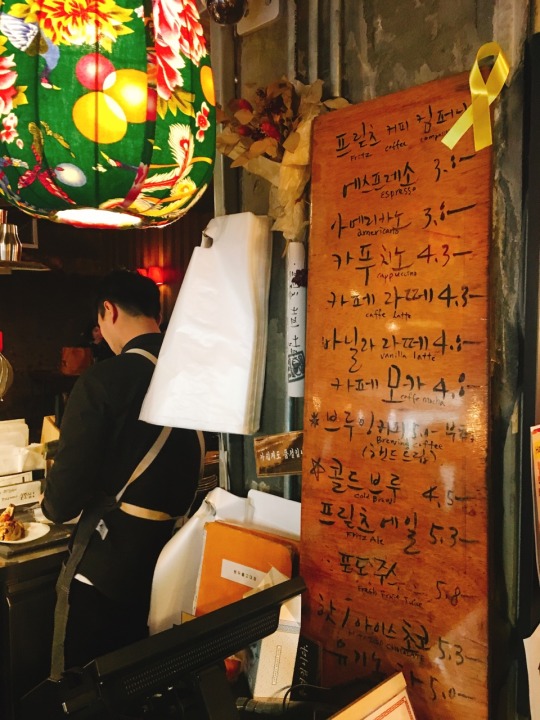 프릳츠 커피 컴퍼니
Fritz coffee company
에스프레소 3.8-
espresso
아메리카노 3.8-
americano
카푸치노 4.3-
cappuccino
카페 라떼 4.3-
caffe latte
바닐라 라떼 4.8-
vanilla latte
카페 모카 4.8-
caffe mocha
※ 브루잉커피 5.0-부터
Brewing coffee
(핸드드립)
※ 콜드브루 4.5-
Cold Brew
프릳츠 에일 5.3-
Fritz Ale
포도주스 5.8-
Fresh Fruit Juice
핫/아이스 초코 5.3-
유기농 5.0-